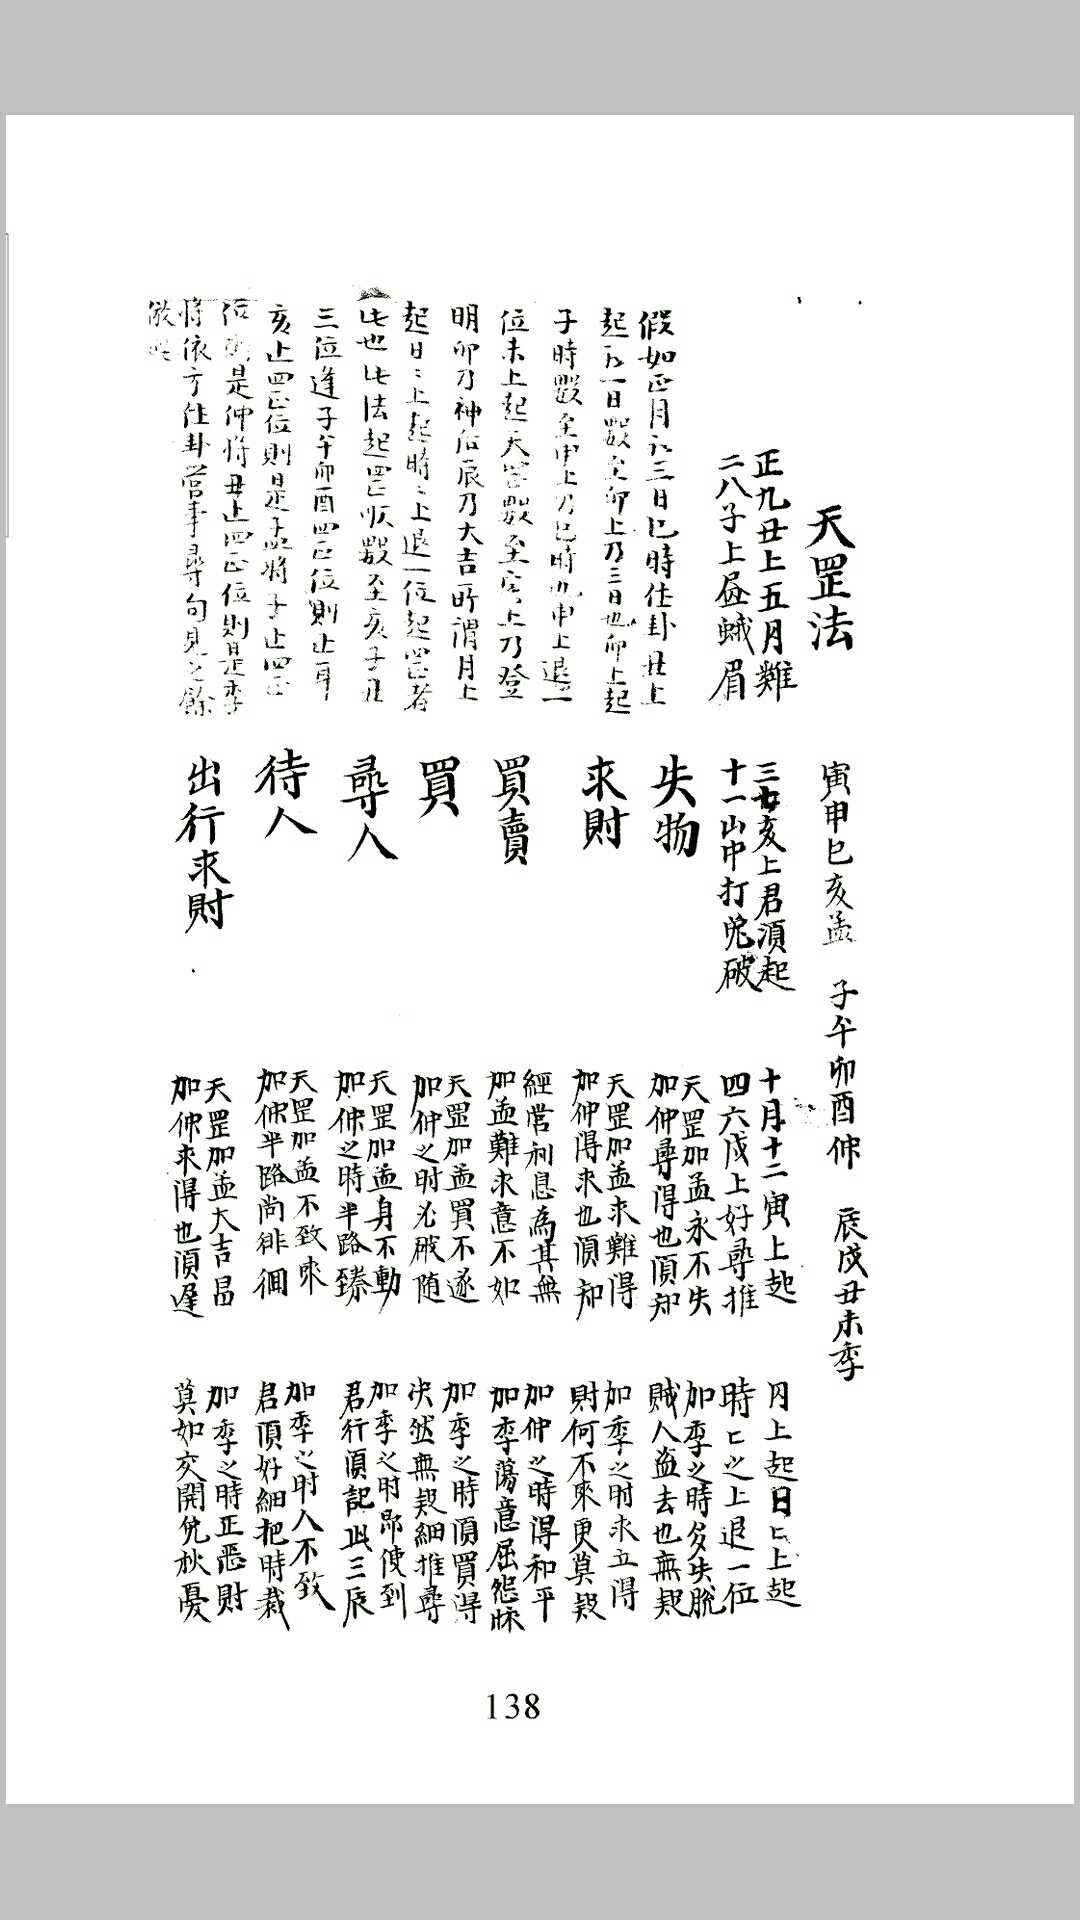 天罡法
寅申巳亥孟　子午卯酉仲　辰戌丑未季
正九丑上五月難
二八子上昼蛾眉
三七亥上君須起
十一山中打兎破
十月十二寅上起
四六戌上好尋推
月上起日匕上起
時匕之上退一位
假如正月初三日巳時仕卦丑上
起初一日數至卯上乃三日也卯上起
子時數至申上乃巳時也申上退一
位未上起天罡數至寅上乃登
明卯乃神后辰乃大吉所謂月上
起日〻上起時〻上退一位起罡者
此也此法起罡順數至亥子丑
三位逢子午卯酉四正位則止耳
亥止四正位則是孟將子止四正
位則是仲將丑止四正位則是季
將依方住卦當事尋句見之餘
倣此
失物
天罡加孟永不失
加仲尋得也須知
加季之時多失脫
賊人盜去也無疑
求財
天罡加孟求難得
加仲得求也須知
加季之时求立得
財何不來更莫疑
買賣
經営利息為其無
加孟難求意不如
加仲之時得和平
加季蕩意屈愁眯
買
天罡加孟買不遂
加仲之时必破随
加季之時須買得
決然無疑細推尋
尋人
天罡加孟身不動
加仲之時半路臻
加季之时即使到
君行須記此三辰
待人
天罡加孟不致來
加仲半路尚徘徊
加季之时人不致
君須好細把時裁
出行求財
天罡加孟大吉昌
加仲来得也須遅
加季之時正惡財
莫如交開免秋憂
138